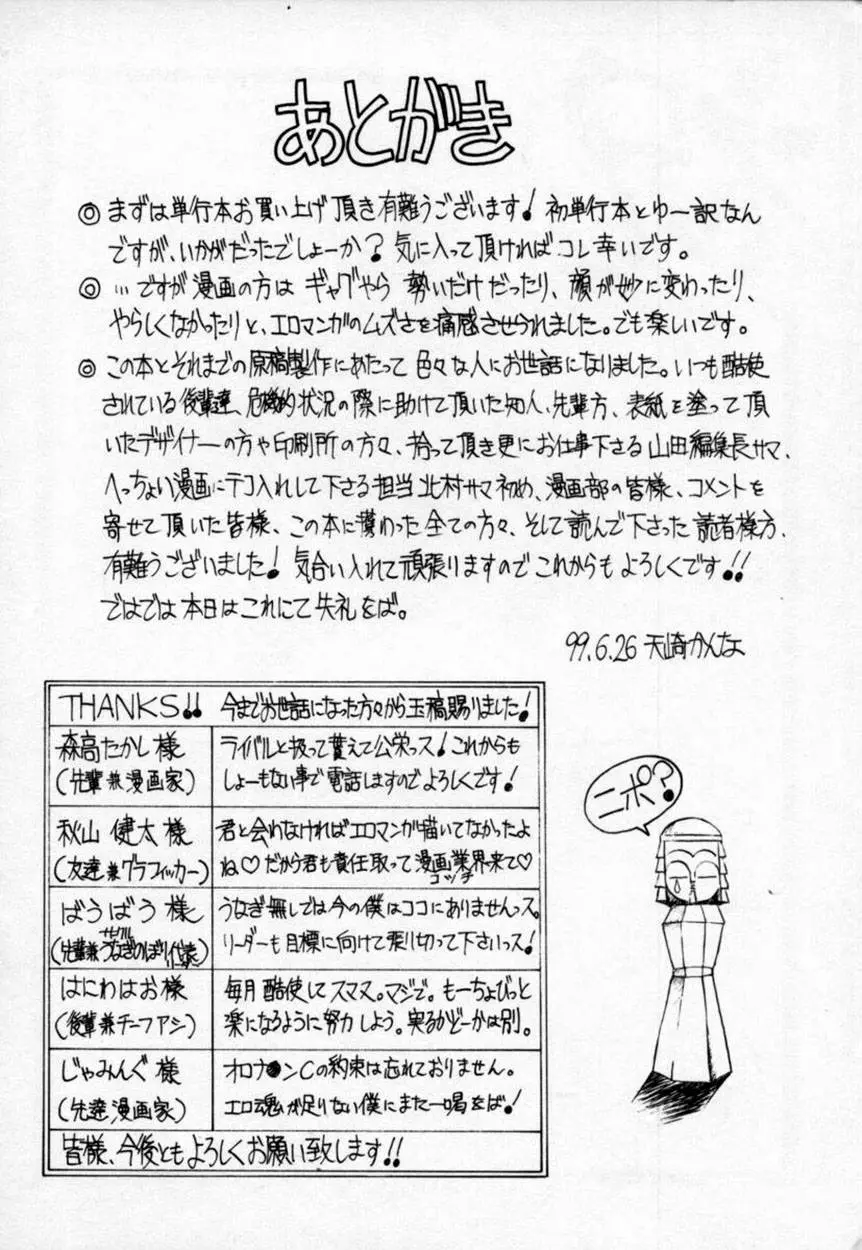 あとがき
◎ まずは単行本お買い上げ頂き有難うございます! 初単行本とゆー訳なん
ですが、いかがだったでしょーか? 気に入って頂ければコレ幸いです。
◎ …ですが漫画の方は ギャグやら 勢いだけだったり、顔が妙に変わったり、
やらしくなかったりと、エロマンガのムズさを痛感させられました。でも楽しいです。
◎ この本とそれまでの原稿製作にあたって 色々な人にお世話になりました。いつも酷使
されている後輩達、危機的状況の際に助けて頂いた知人、先輩方、表紙を塗って頂
いたデザイナーの方や印刷所の方々、拾って頂き更にお仕事下さる 山田編集長サマ、
へっちょい漫画にテコ入れして下さる担当 北村サマ初め、漫画部の皆様、コメントを
寄せて頂いた皆様、この本に携わった全ての方々、そして読んで下さった読者様方、
有難うございました! 気合い入れて頑張りますので これからも よろしくです!!
ではでは本日はこれにて失礼をば。
99.6.26 天崎かんな
THANKS!! 今までお世話になった方々から玉稿賜りました!
森高たかし様
(先輩兼漫画家)
ライバルと扱って貰えて公栄っス! これからも
しょーもない事で電話しますのでよろしくです!
秋山 健太様
(友達兼グラフィッカー)
君と会わなければエロマンガ描いてなかったよ
ね♡ だから君も責任取って漫画業界来て♡
コッチ
ばうばう様
サークル
(先輩兼うなぎのぼり代表)
うなぎ無しでは今の僕はココにありませんっス。
リーダーも目標に向けて張り切って下さいっス!
はにわはお様
(後輩兼チーフアシ)
毎月酷使してスマヌ。マジで。もーちょびっと
楽になるように努力しよう。実るかどーかは別。
じゃみんぐ様
(先達漫画家)
オロナ●ンCの約束は忘れておりません。
エロ魂が足りない僕にまた一喝をば!
皆様、今後ともよろしくお願い致します!!
ニポ?